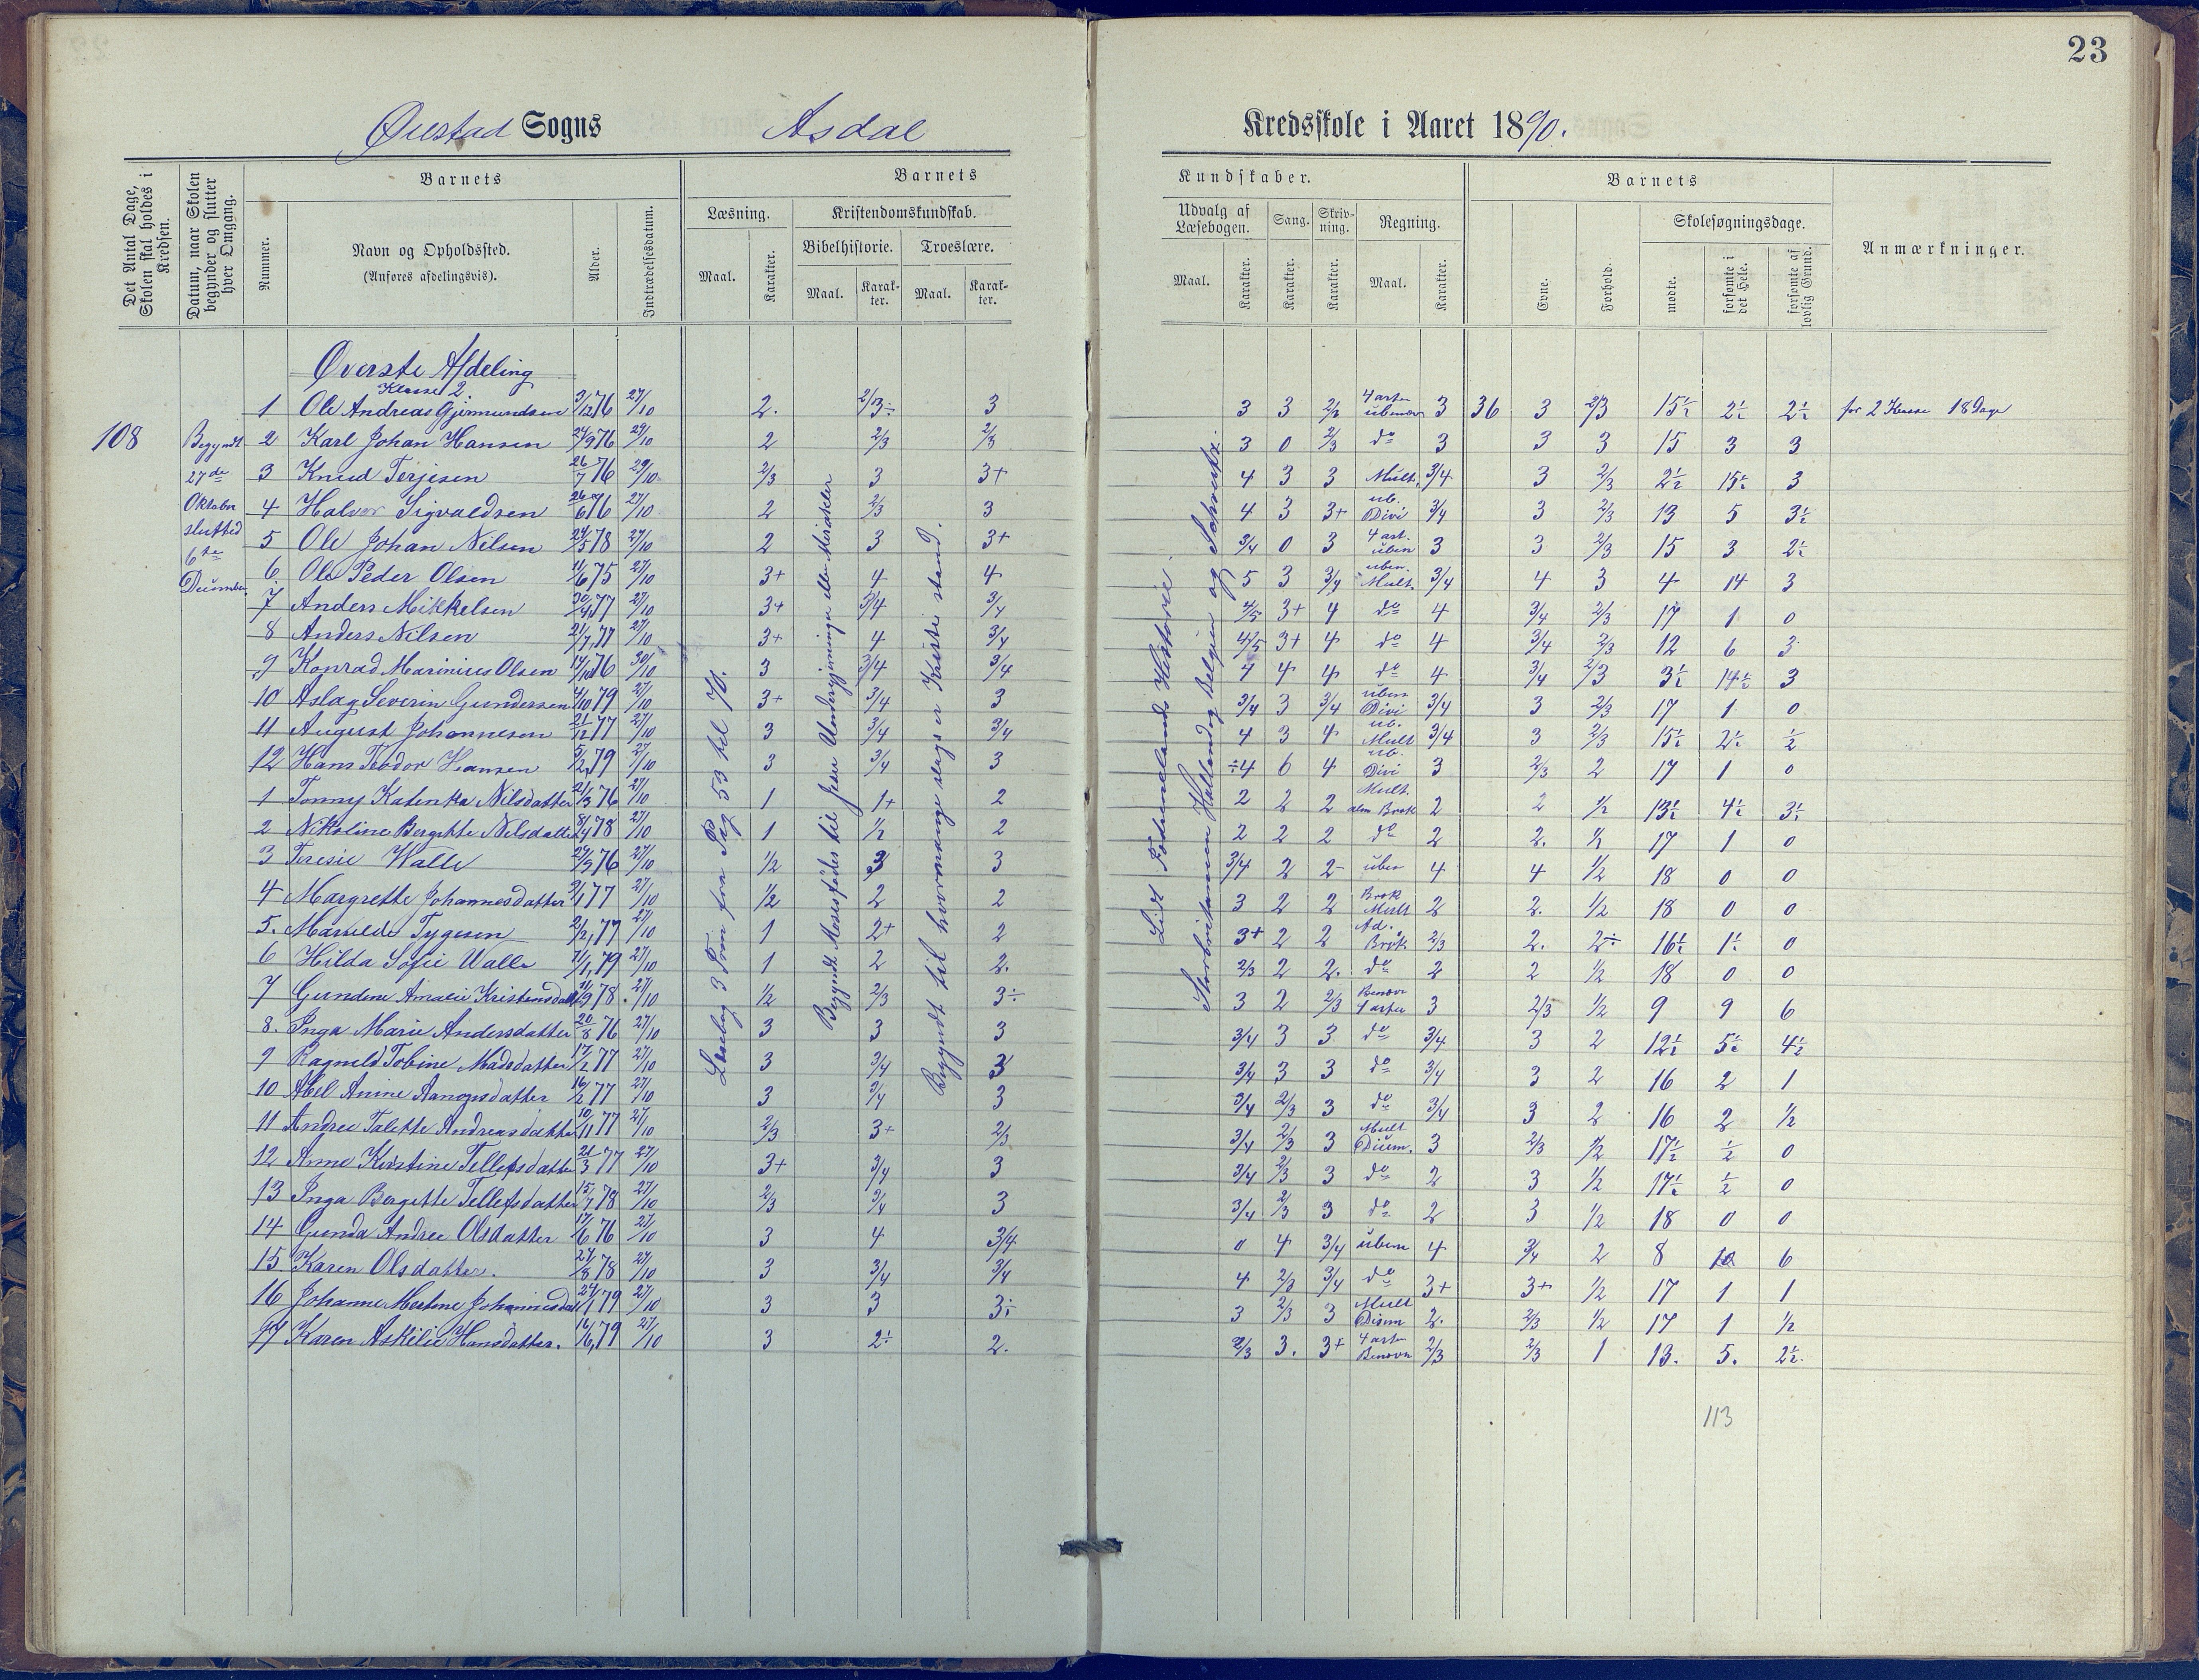 23
Øiestad Sogns Asdal Kredsskole i Aaret 1890.
Det Antal Dage, Skolen skal holdes i Kredsen.
Datum, naar Skolen begynder og slutter hver Omgang.
Barnets
Nummer.
Navn og Opholdssted.
(Anføres afdelingsvis).
Alder.
Indtrædelsesdatum.
Barnets
Læsning.
Maal.
Karakter.
Kristendomskundskab.
Bibelhistorie.
Maal.
Karakter.
Troeslære.
Maal.
Karakter.
Kundskaber.
Udvalg af Læsebogen.
Maal.
Karakter.
Sang.
Karakter.
Skrivning.
Karakter.
Regning.
Maal.
Karakter.
Barnets
Evne.
Forhold.
Skolesøgningsdage.
mødte.
forsømte i det Hele.
forsømte af lovlig Grund.
Anmærkninger.
108
Begyndt 27de Oktober slutted 6te December
Læsebog 3 Trin fra Pag 53 til 70.
Begyndt Moses fødes til Jesu Undergjerninger eller Mirakler
Begyndt til hvormange slags er Kristi stand.
Lidt Fædrenelands Historie.
Storbritanien Holland og Belgien og Schveitz.
Øverste Afdeling
Klasse 2
1 Ole Andreas Gjermundsen 3/12 76 27/10 2. 2/3÷ 3 3 3 2/3 4 arter ubenævn 3 36 3 2/3 15½ 2½ 2½ for 2 Klasse 18 Dage
2 Karl Johan Hansen 24/9 76 29/10 2 2/3 2/3 3 0 2/3 do 3 3 3 15 3 3
3 Knud Terjesen 26/7 76 29/10 2/3 3 3+ 4 3 3 Mult. 3/4 3 2/3 2½ 15½ 3
4 Halvor Sigvaldsen 26/6 76 27/10 2 2/3 3 4 3 3+ ub. Divi 3/4 3 2/3 13 5 3½
5 Ole Johan Nilsen 24/5 78 27/10 2 3 3+ 3/4 0 3 4 art. uben 3 3 2/3 15 3 2½
6. Ole Peder Olsen 11/6 75 27/10 3+ 4 4 5 3 3/4 uben. Mult. 3/4 4 3 4 14 3
7 Anders Mikkelsen 30/4 77 27/10 3+ 3/4 3/4 4/5 3+ 4 do 4 3/4 2/3 17 1 0
8 Anders Nilsen 21/7 77 27/10 3+ 4 3/4 4/5 3+ 4 do 4 3/4 2/3 12 6 3
9 Konrad Marinius Olsen 14/10 76 30/10 3 3/4 3/4 4 4 4 do 4 3/4 2/3 3½ 14½ 3
10 Aslag Severin Gundersen 4/10 79 27/10 3+ 3/4 3 3/4 3 3/4 uben Divi 3/4 3 2/3 17 1 0
11 August Johannesen 21/12 77 27/10 3 3/4 3/4 4 3 4 ub. Mult 3/4 3 2/3 15½ 2½ ½
12 Hans Teodor Hansen 5/2 79 27/10 3 3/4 3 ÷4 6 4 ub. Divi 3 2/3 2 17 1 0
1 Tonny Katenka Nilsdatter 21/3 76 27/10 1 1+ 2 2 2 2 Mult. alm Brøk 2 2 ½ 13½ 4½ 3½
2 Nikoline Bergitte Nilsdatter 8/4 78 27/10 1 ½ 2 2 2 2 do 2 2. ½ 17 1 0
3 Teresie Walle 24/9 76 27/10 ½ 3 3 3/4 2 2- uben 4 4 ½ 18 0 0
4 Margrethe Johannesdatter 3/1 77 27/10 ½ 2 2 3 2 2 Brøk Mult 2 2. ½ 18 0 0
5. Matilde Tygesen 2/2 77 27/10 1 2+ 2 3+ 2 2 Ad. Brøk 2/3 2. 2÷ 16½ 1½ 0
6 Hilda Sofie Walle 11/1 79 27/10 1 2 2. 2/3 2 2. do 2 2 ½ 18 0 0
7 Gundine Amalie Kristensdatt 11/9 78. 27/10 ½ 2/3 3÷ 3 2 2/3 Benævn 4 arter 3 2/3 ½ 9 9 6
8. Inga Marie Andersdatter 20/8 76 27/10 3 3 3 3/4 3 3 do 3/4 3 2 12½ 5½ 4½
9 Ragnild Tobine Madsdatter 17/2 77 27/10 3 3/4 3 3/4 3 3 do 3/4 3 2 16 2 1
10 Abel Anine Aanonsdatter 16/2 77 27/10 3 3/4 3 3/4 2/3 3 do 3/4 3 2 16 2 ½
11 Andrea Talette Andreasdatter 10/11 77 27/10 2/3 3+ 2/3 3/4 2/3 3 Mult Dium. 3 2/3 ½ 17½ ½ 0
12 Anne Kirstine Tellefsdatter 21/3 77 27/10 3+ 3/4 3 3/4 2/3 3 do 2 3 ½ 17½ ½ 0
13 Inga Bergitte Tellefsdatter 15/7 78 27/10 2/3 3/4 3 3/4 2/3 3 do 2 3 ½ 18 0 0
14 Gunda Andrea Olsdatter 17/6 76 27/10 3 4 3/4 0 4 3/4 uben 4 3/4 2 8 10 6
15. Karen Olsdatter. 27/8 78 27/10 3 3/4 3/4 4 2/3 3/4 do 3+ 3+ ½ 17 1 1
16 Johanne Martine Johannesdatt 24/1 79 27/10 3 3 3÷ 3 2/3 3 Mult Disim 2. 2/3 ½ 17 1 ½
17 Karen Askilie Hansdatter. 16/6 79 27/10 3 2÷ 2. 2/3 3. 3+ 4 arter Benævn 2/3 2/3 1 13. 5. 2½.
113